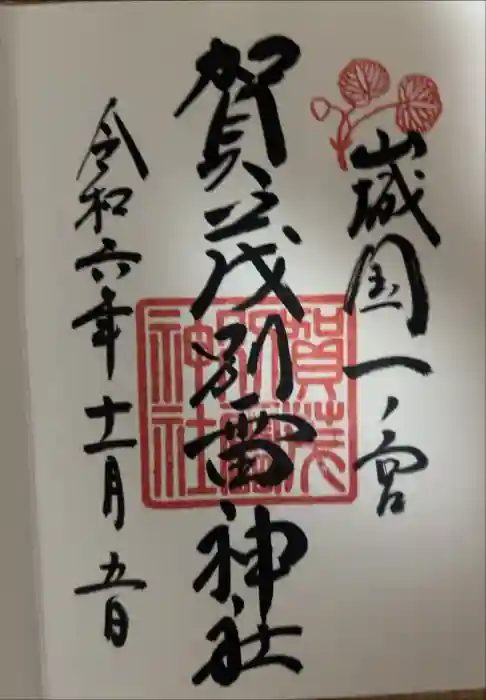 山城国一ノ宮
賀茂別雷神社
賀茂別雷神社
令和六年十一月五日